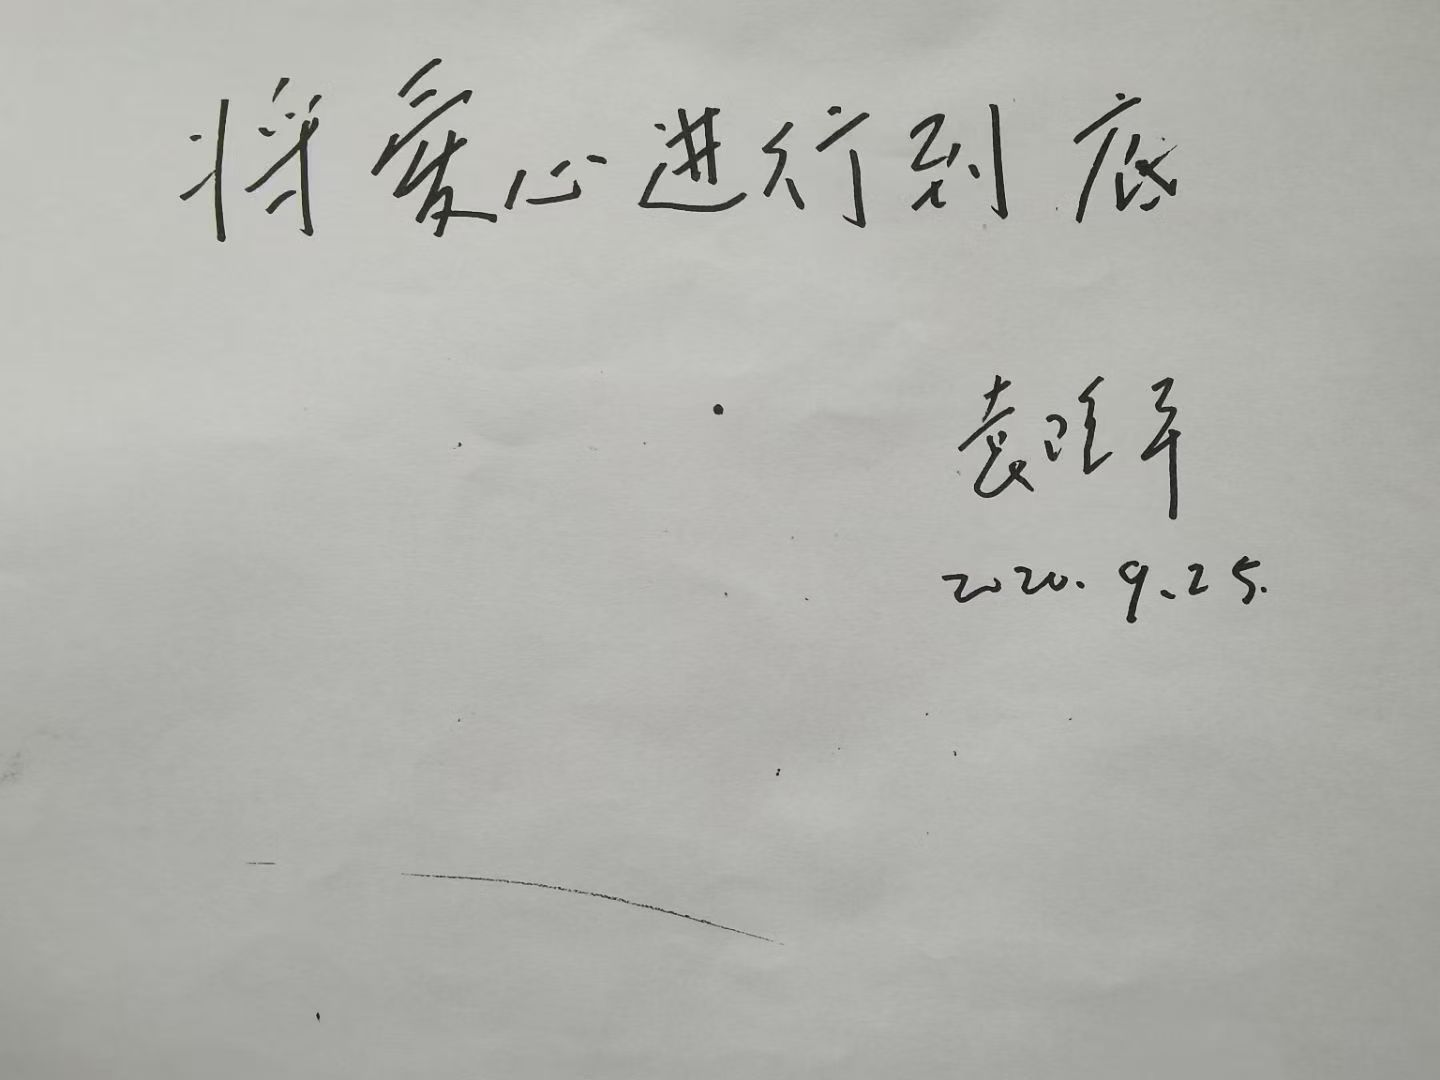 将爱心进行到底
袁隆平
2020.9.25.